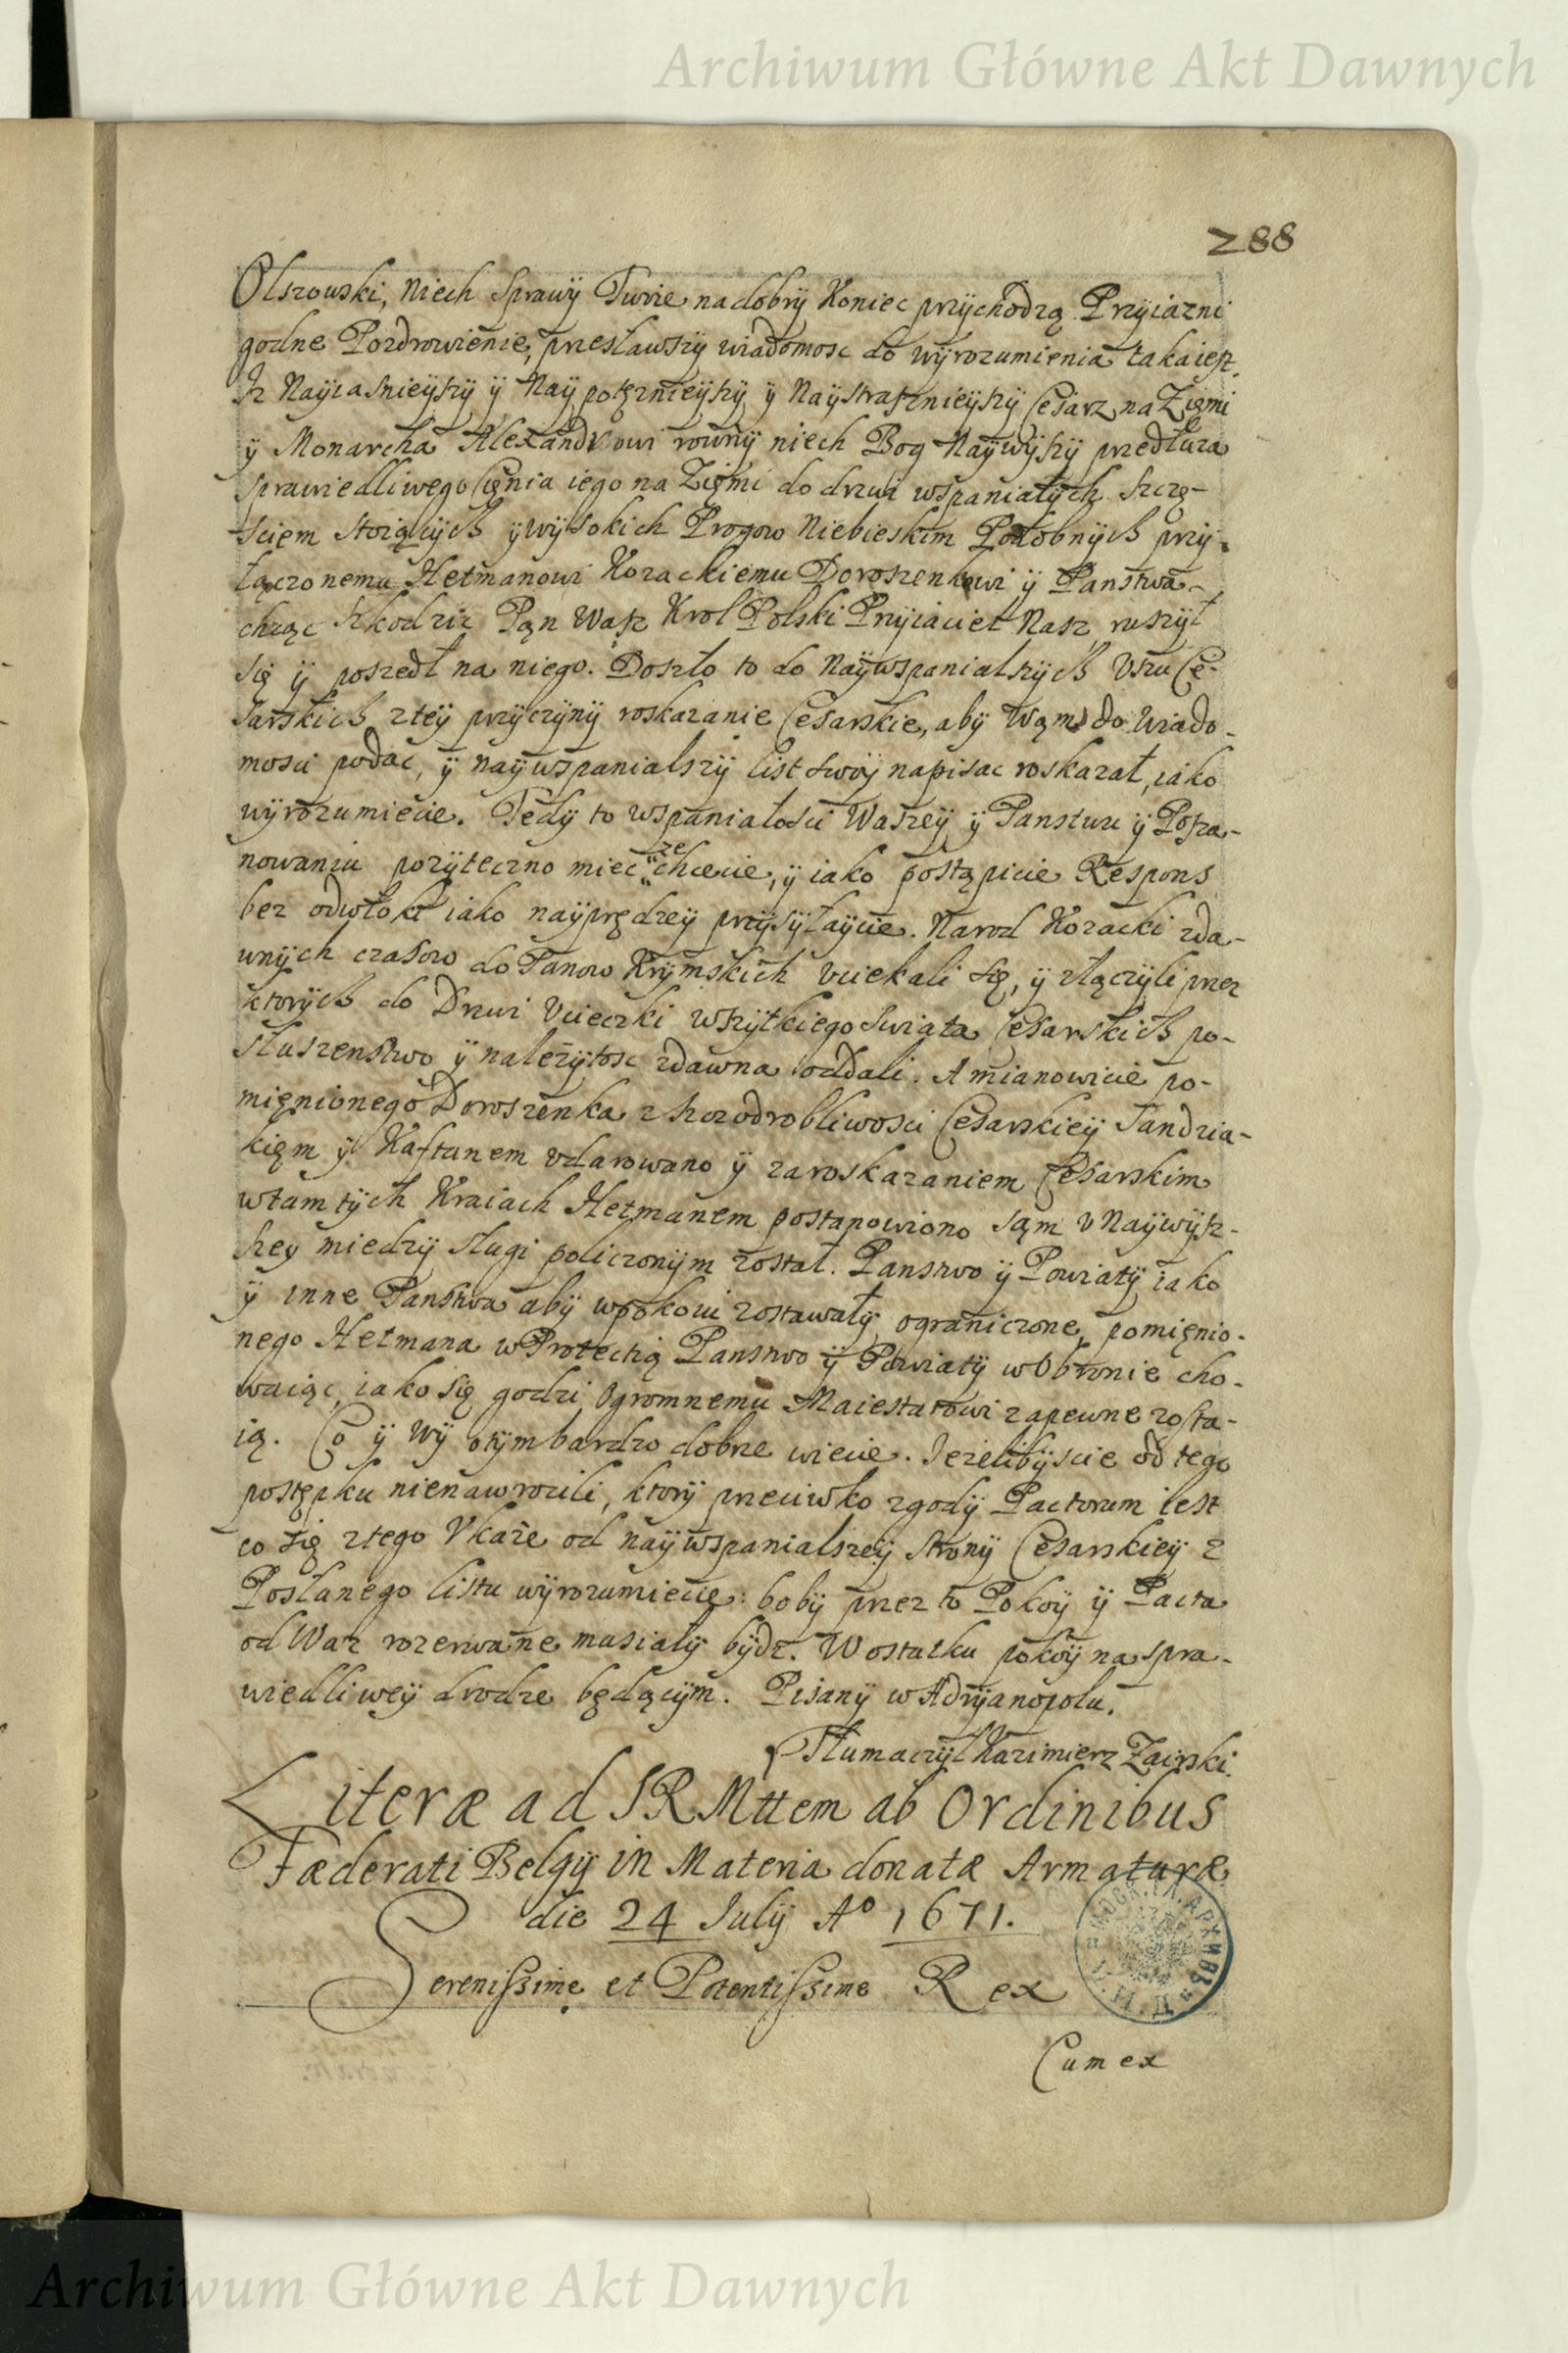 Archiwum Główne Akt Dawnych
288
Olszowski, Niech Sprawÿ Twoie na dobrÿ Koniec przÿchodzą Przÿiazni
godne Pozdrowienie, przesławszÿ wiadomosc do wÿrozumienia taka iest.
Iz Naÿiasnieÿszÿ ÿ Naÿpotęznieÿszÿ ÿ Naÿstrasznieÿszÿ Cesarz na Zięmi
ÿ Monarcha Alexandrowi rownÿ niech Bog Naÿwÿszÿ przedłuza
sprawiedliwego Cięnia iego na Zięmi do drzwi wspaniałÿch Szczę-
sciem stoiącÿch ÿ wÿsokich Progow Niebieskim Podobnÿch przÿ-
łączonemu Hetmanowi Kozackiemu Doroszenkowi ÿ Panstwa
chcąc szkodzic Pąn Wasz Krol Polski Przÿiaciel Nasz ruszÿł
się ÿ poszedł na niego. Doszło to do Naÿwspanialszÿch Uszu Ce-
sarskich z teÿ przÿczÿnÿ roskazanie Cesarskie, abÿ Wąm do wiado-
mosci podac, ÿ naÿwspanialszÿ list swoÿ napisac roskazał, iako
wÿrozumiecie. Tedÿ to wspaniałosci Waszeÿ ÿ Panstwu ÿ Posza-
nowaniu pozÿteczno miec ze chcecie, ÿ iako postąpicie Respons
bez odwłoki iako naÿprędzeÿ przÿsÿłaÿcie. Narod Kozacki zda-
wnÿch czasow do Panow Krÿmskich Vciekali się, ÿ złączÿli przez
ktorÿch do Drzwi Vcieczki wszÿtkiego Swiata Cesarskich po-
słuszenstwo ÿ nalezÿtosc zdawna oddali. A mianowicie po-
mięnionego Doroszenka z szczodrobliwosci Cesarskieÿ Sandzia-
kięm ÿ Kaftanem vdarowano ÿ za roskazaniem Cesarskim
w tamtÿch Kraiach Hetmanem postanowiono sąm v Naÿwÿsz-
szeÿ miedzÿ sługi policzonÿm został. Panstwo ÿ Powiatÿ iako
ÿ inne Panstwa abÿ w pokoiu zostawałÿ ograniczone, pomięnio-
nego Hetmana w Protectią Panstwo ÿ Powiatÿ w Obronie cho-
waiąc, iako się godzi Ogromnemu Maiestatowi zapewne zosta-
ią. Co ÿ Wÿ o tÿm bardzo dobrze wiecie. Iezelibÿscie od tego
postępku nienawrocili, ktorÿ przeciwko zgodÿ Pactorum iest
co się z tego Vkaze od naÿwspanialszeÿ stronÿ Cesarskieÿ z
Posłanego listu wÿrozumiecie: bo bÿ przez to Pokoÿ ÿ Pacta
od Waz rozerwane musiałÿ bÿdz. W ostatku pokoÿ na spra-
wiedliweÿ drodze będącÿm. Pisanÿ w Adrÿanopolu.
Tłumaczÿł Kazimierz Zairski.
Literæ ad SRMttem ab Ordinibus
Fæderati Belgÿ in Materia donatæ Armaturæ
die 24 Julÿ Aº 1671.
Serenissime et Potentissime Rex
Cum ex
Archiwum Główne Akt Dawnych